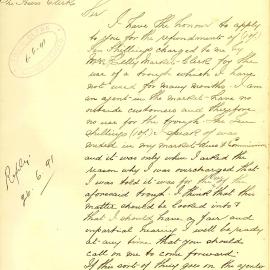 The Town Clerk
Sir
I have the honour to apply
to you for the refundment of (10/-)
Ten Shillings charged to me by
Mr. Market Clerk for the
use of a trough which I have
not used for many months. I am
an agent in the market have no
outside customers and therefore
no use for the trough. The ten
shillings (10/-) I speak of was
ended in my market dues & Commission
and it was only when I asked the
reason why I was overcharged that
I was told it was for
aforesaid trough. I think that this
matter should be looked into &
that I should have a fair and
impartial hearing I will be ready
at any time that you should
call on me to come forward.
If this sort of thing goes on the agents
6.6.91
Reply